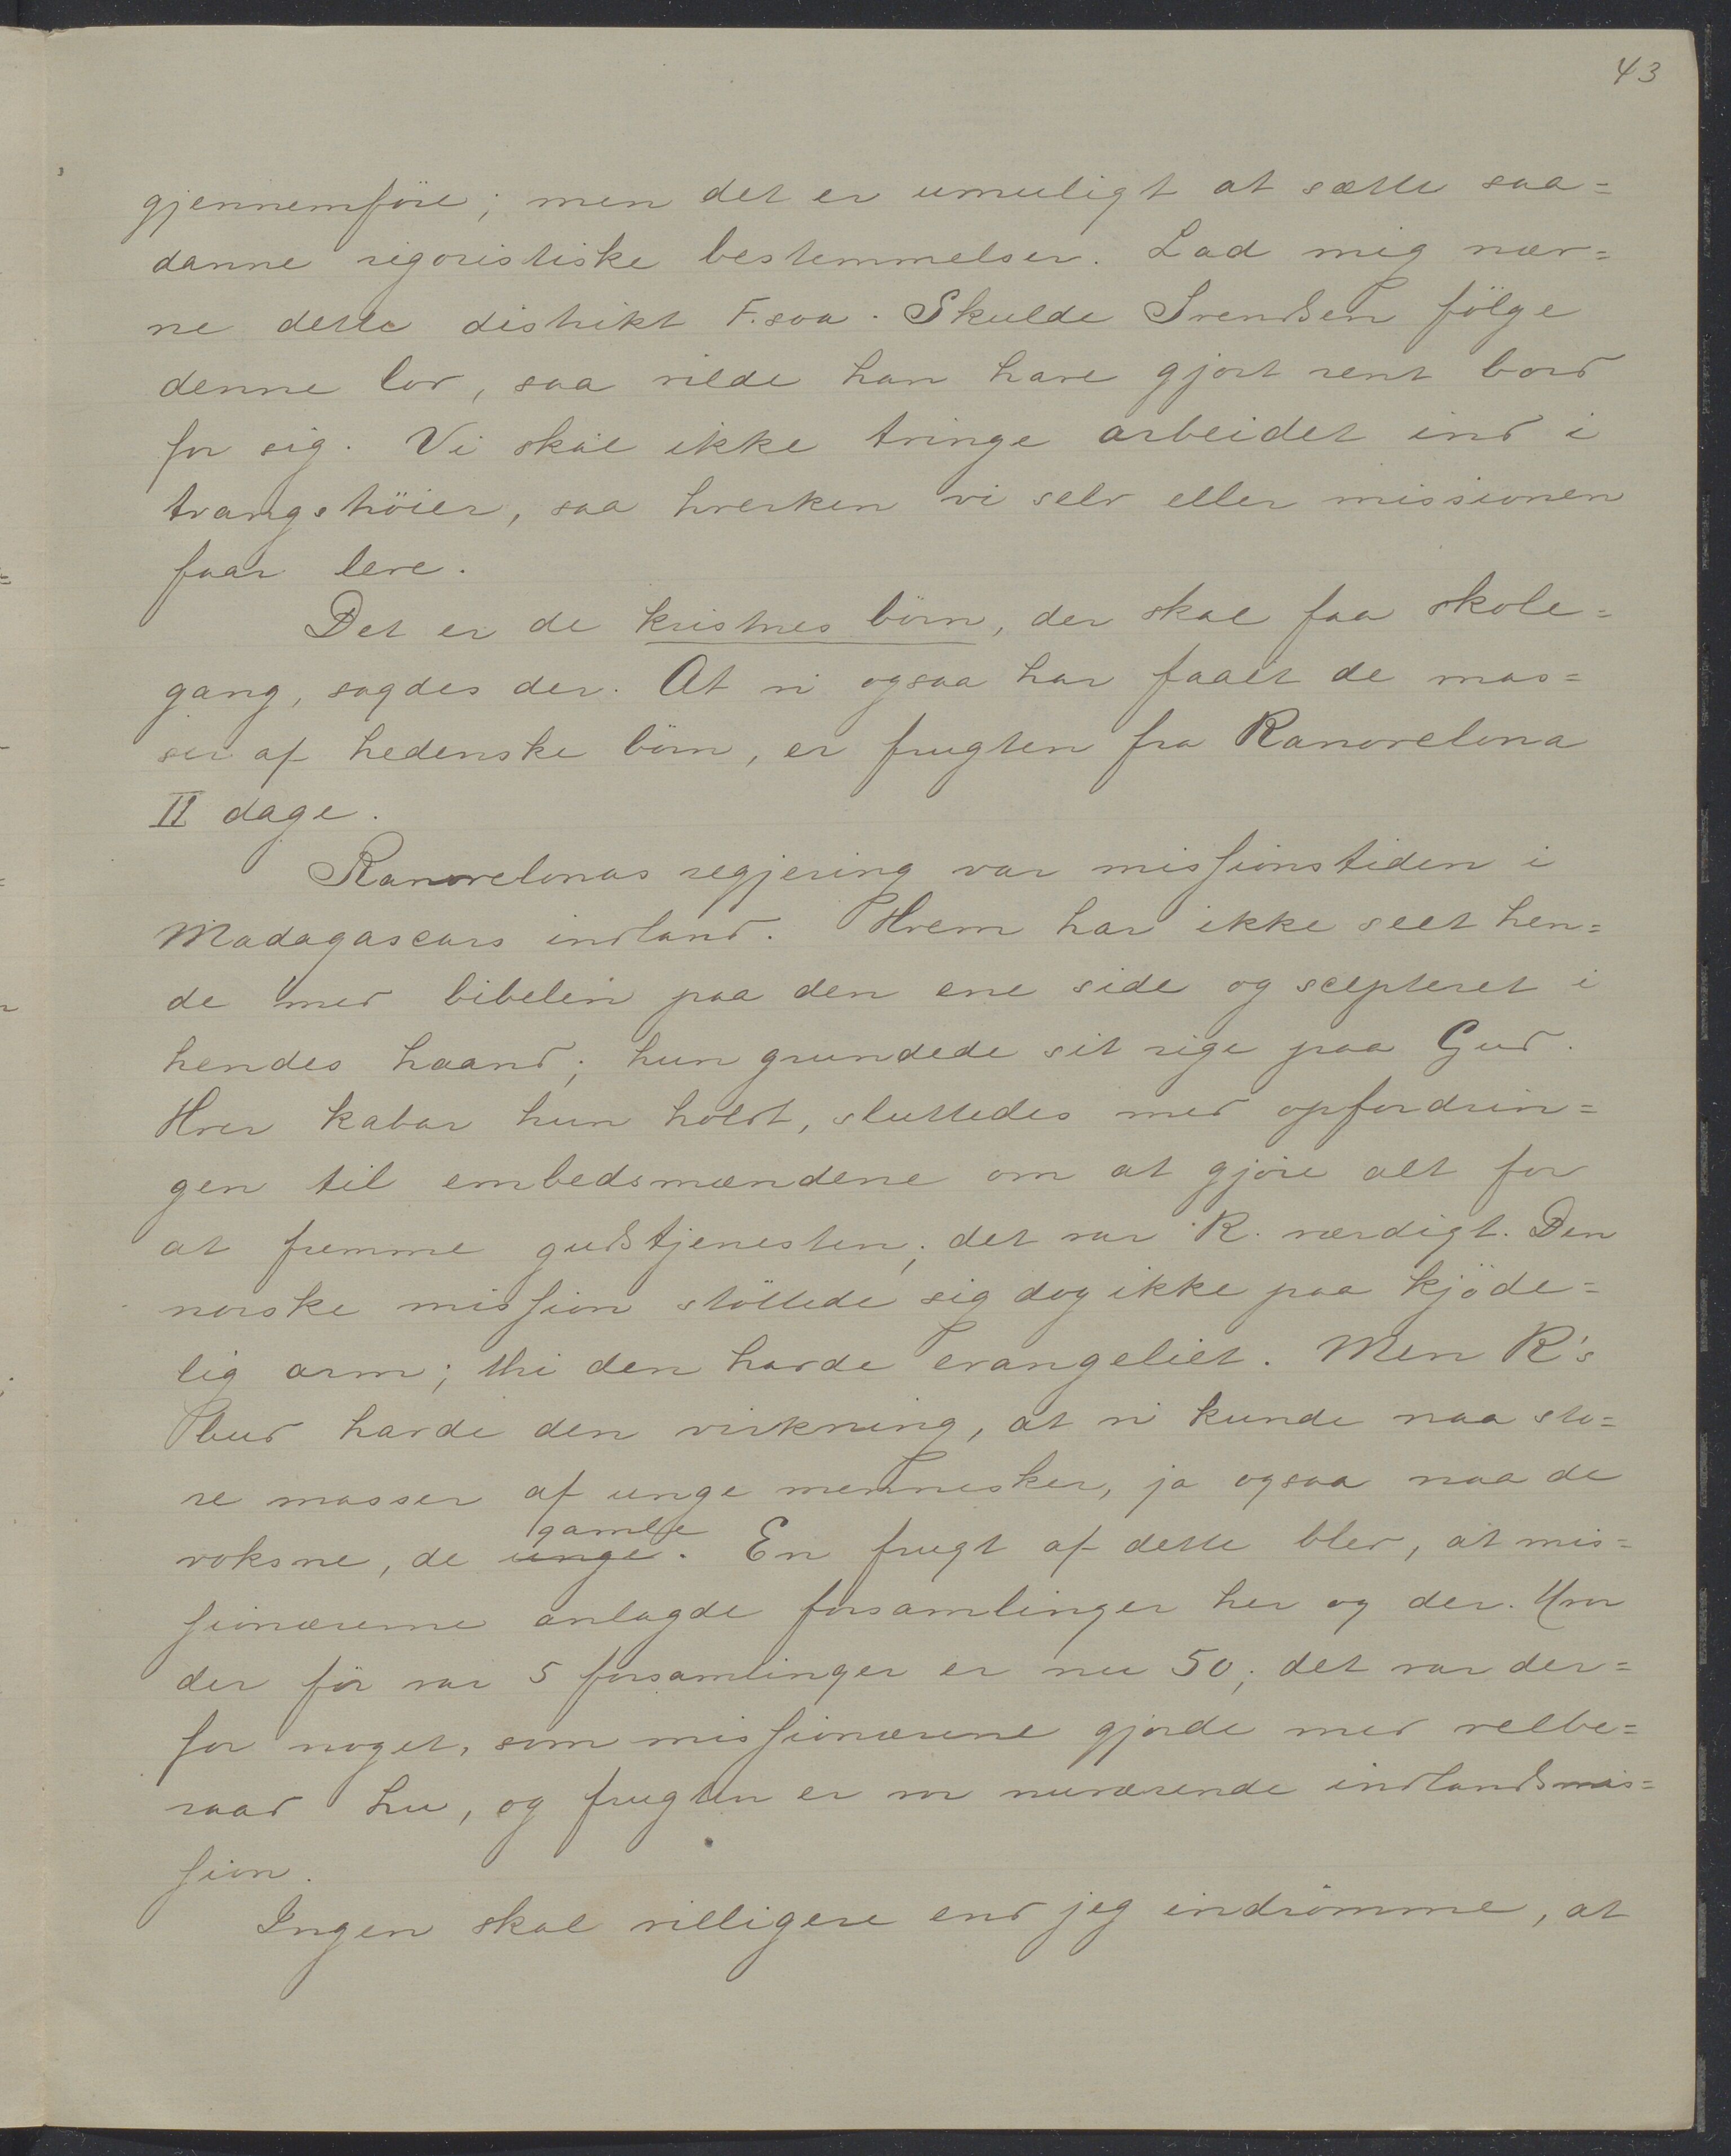 43
gjennemføre; men det er umuligt at sætte saa=
danne rigoristiske bestemmelser. Lad mig næv=
ne dette distrikt F.soa. Skulde Svendsen følge
denne lov, saa vilde han have gjort rent bord
for sig. Vi skal ikke tvinge arbeidet ind i
tvangstrøier, saa hverken vi selv eller missionen
faar leve.
Det er de kristnes börn, der skal faa skole=
gang, sagdes der. At vi ogsaa har faaet de mas=
ser af hedenske börn, er frugten fra Ranovelona
II dage.
Ranovelonas regjering var missionstiden i
Madagascars indland. Hvem har ikke seet hen=
de med bibelen paa den ene side og scepteret i
hendes haand; hun grundede sit rige paa Gud.
Hver kabar hun holdt, sluttedes med opfordrin=
gen til embedsmændene om at gjöre alt for
at fremme gudstjenesten; det var R. værdigt. Den
norske mission støttede sig dog ikke paa kjöde=
lig arm; thi den havde evangeliet. Men R's
bud havde den virkning, at vi kunde naa sto=
re masser af unge mennesker, ja ogsaa naa de
voksne, de unge gamle. En frugt af dette blev, at mis=
sionærerne anlagde forsamlinger her og der. Hvor
der för var 5 forsamlinger er nu 50; det var der=
for noget, som missionærerne gjorde med velbe=
raad hu, og frugten er vor nuværende indlandsmis=
sion.
Ingen skal villigere end jeg indrömme, at